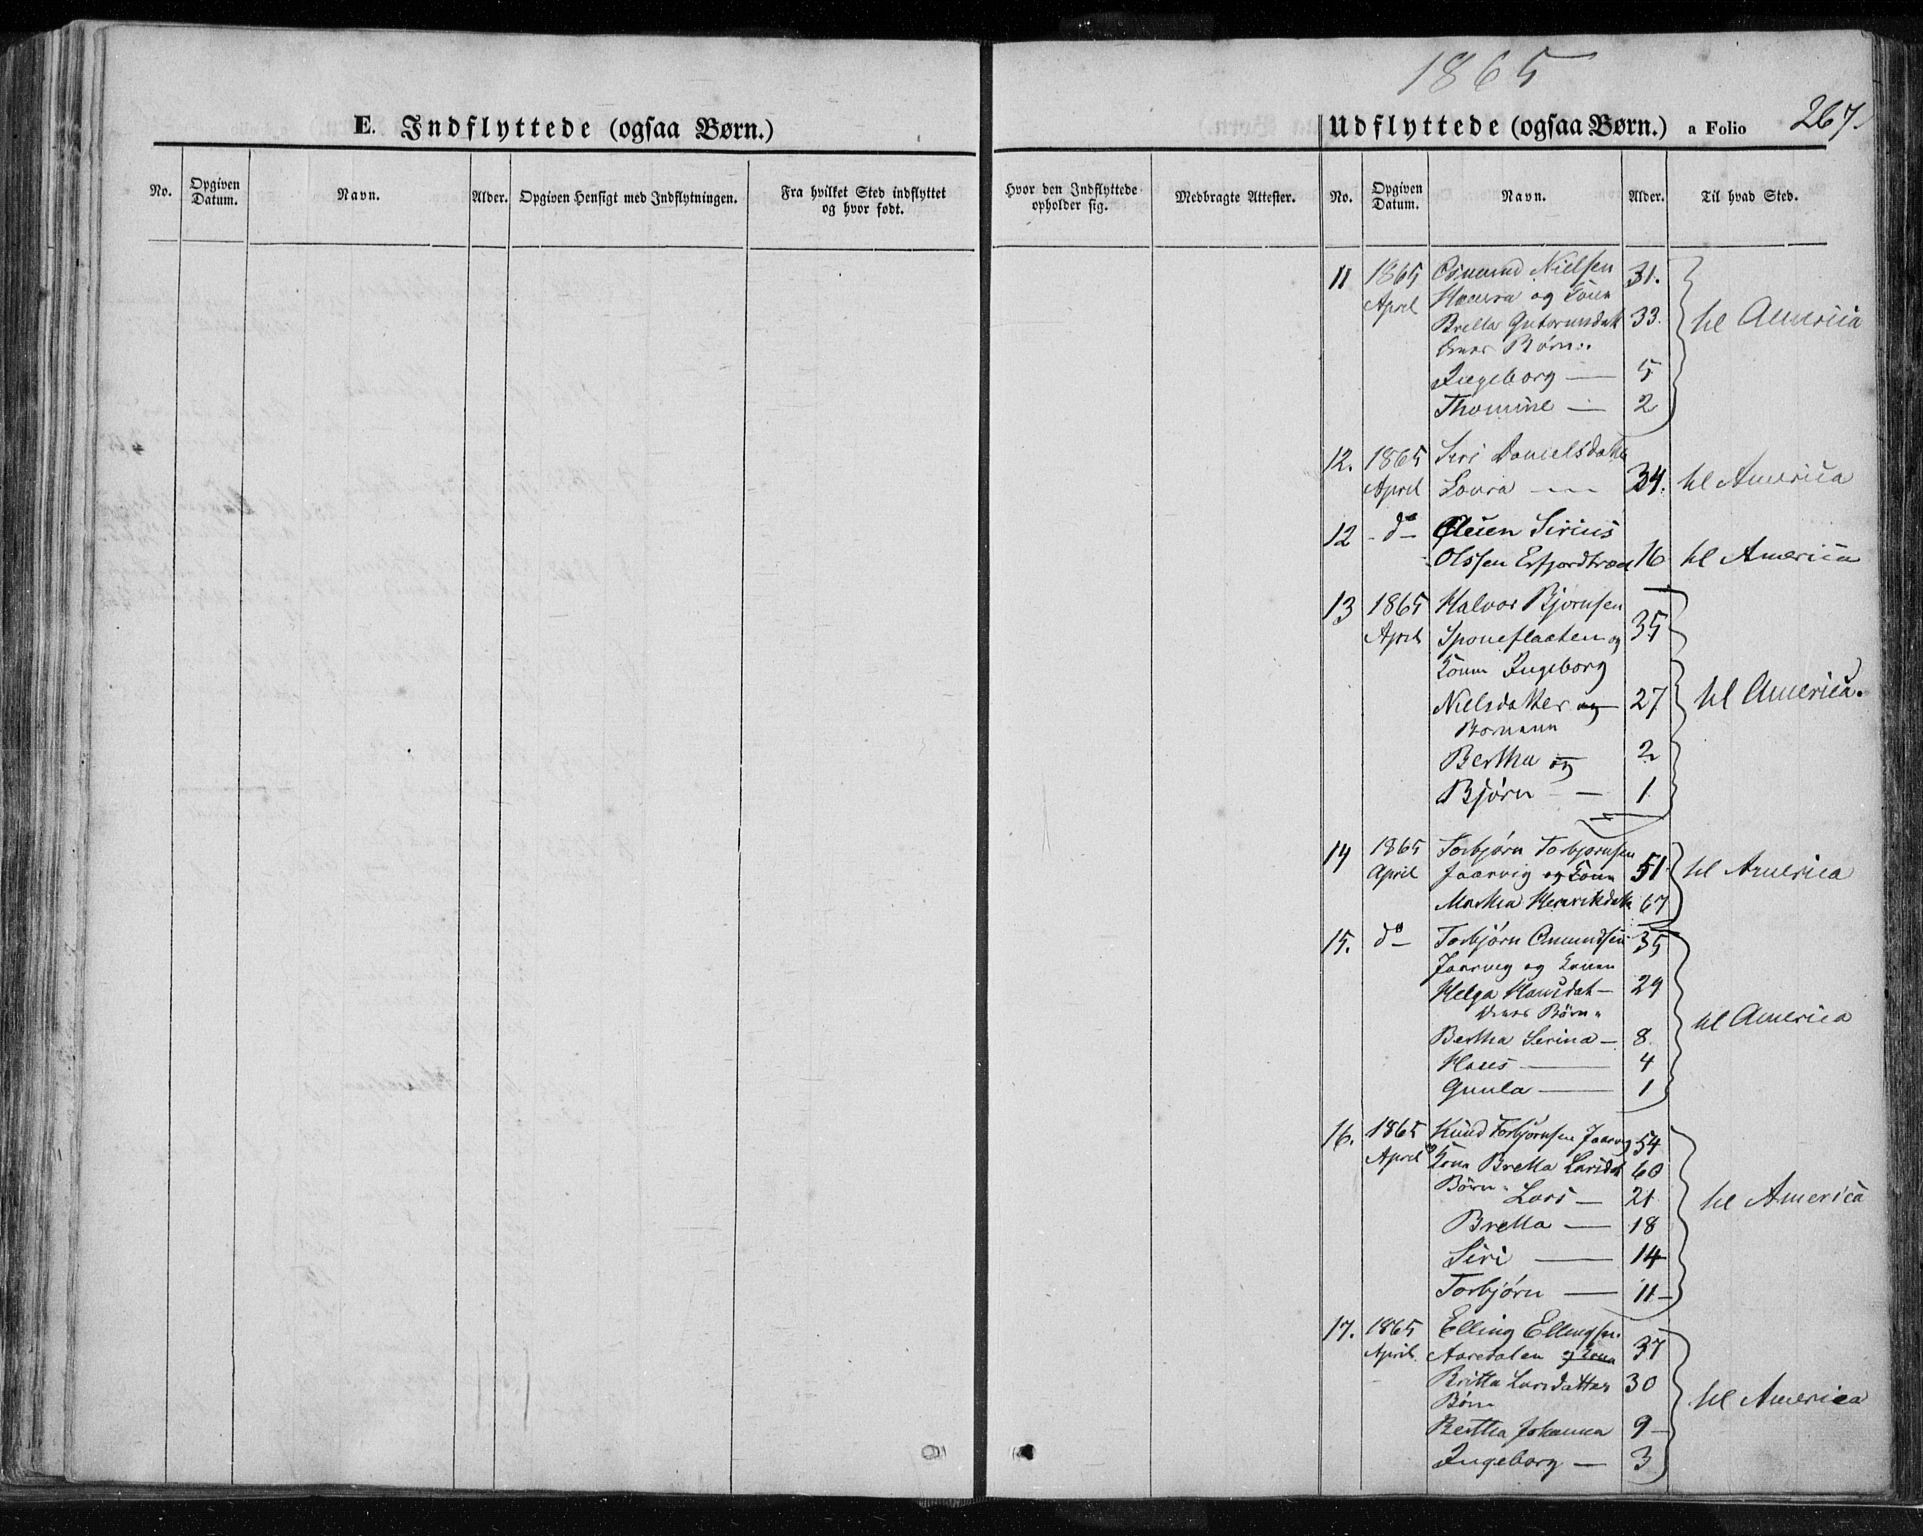 1865
267.
E. Indflyttede (ogsaa Børn.)
Udflyttede (ogsaa Børn.) a Folio
No. Opgiven Datum. Navn. Alder. Opgiven Hensigt med Indflytningen. Fra hvilket Sted indflyttet og hvor født. Hvor den Indflyttede opholder sig. Medbragte Attester. No. Opgiven Datum. Navn. Alder. Til hvad Sted.
11 1865 Osmund Nielsen 31.
April og Kone
Britha Gutormdatt 33. til America
Børn:
Ingeborg — 5
Thomine — 2
12. 1865 Siri Danielsdatter
April Lovra — 34. til America
12 do Sirius
Olssen 16 til America
13 1865 Halvor Bjørnsen 35
April Sponeflaaten og
Kone Ingeborg
Nielsdatter og 27 til America.
Børnene
Bertha og 2
Bjørn — 1
14 1865 Torbjørn Torbjørnsen
April Jaarvig og Kone 51 til America
Martha Henrikdatt 67
15. do Torbjørn Omundsen 35
Jaarvig og Konen
Helga Hansdat — 29
Deres Børn
til America
Bertha Serina — 8
Hans — 4
Gunla — 1
16. 1865 Knud Torbjørnsen Jaarvig 54
April Kone Britta Larsdat 60
Børn: Lars — 21 til America
Britta — 18
Siri — 14
Torbjørn — 11
17. 1865 Elling Ellingsen
April Aaredalen og Kona 37
Britta Larsdatter 30
Børn til America
Bertha Johanna 9
Ingeborg — 3